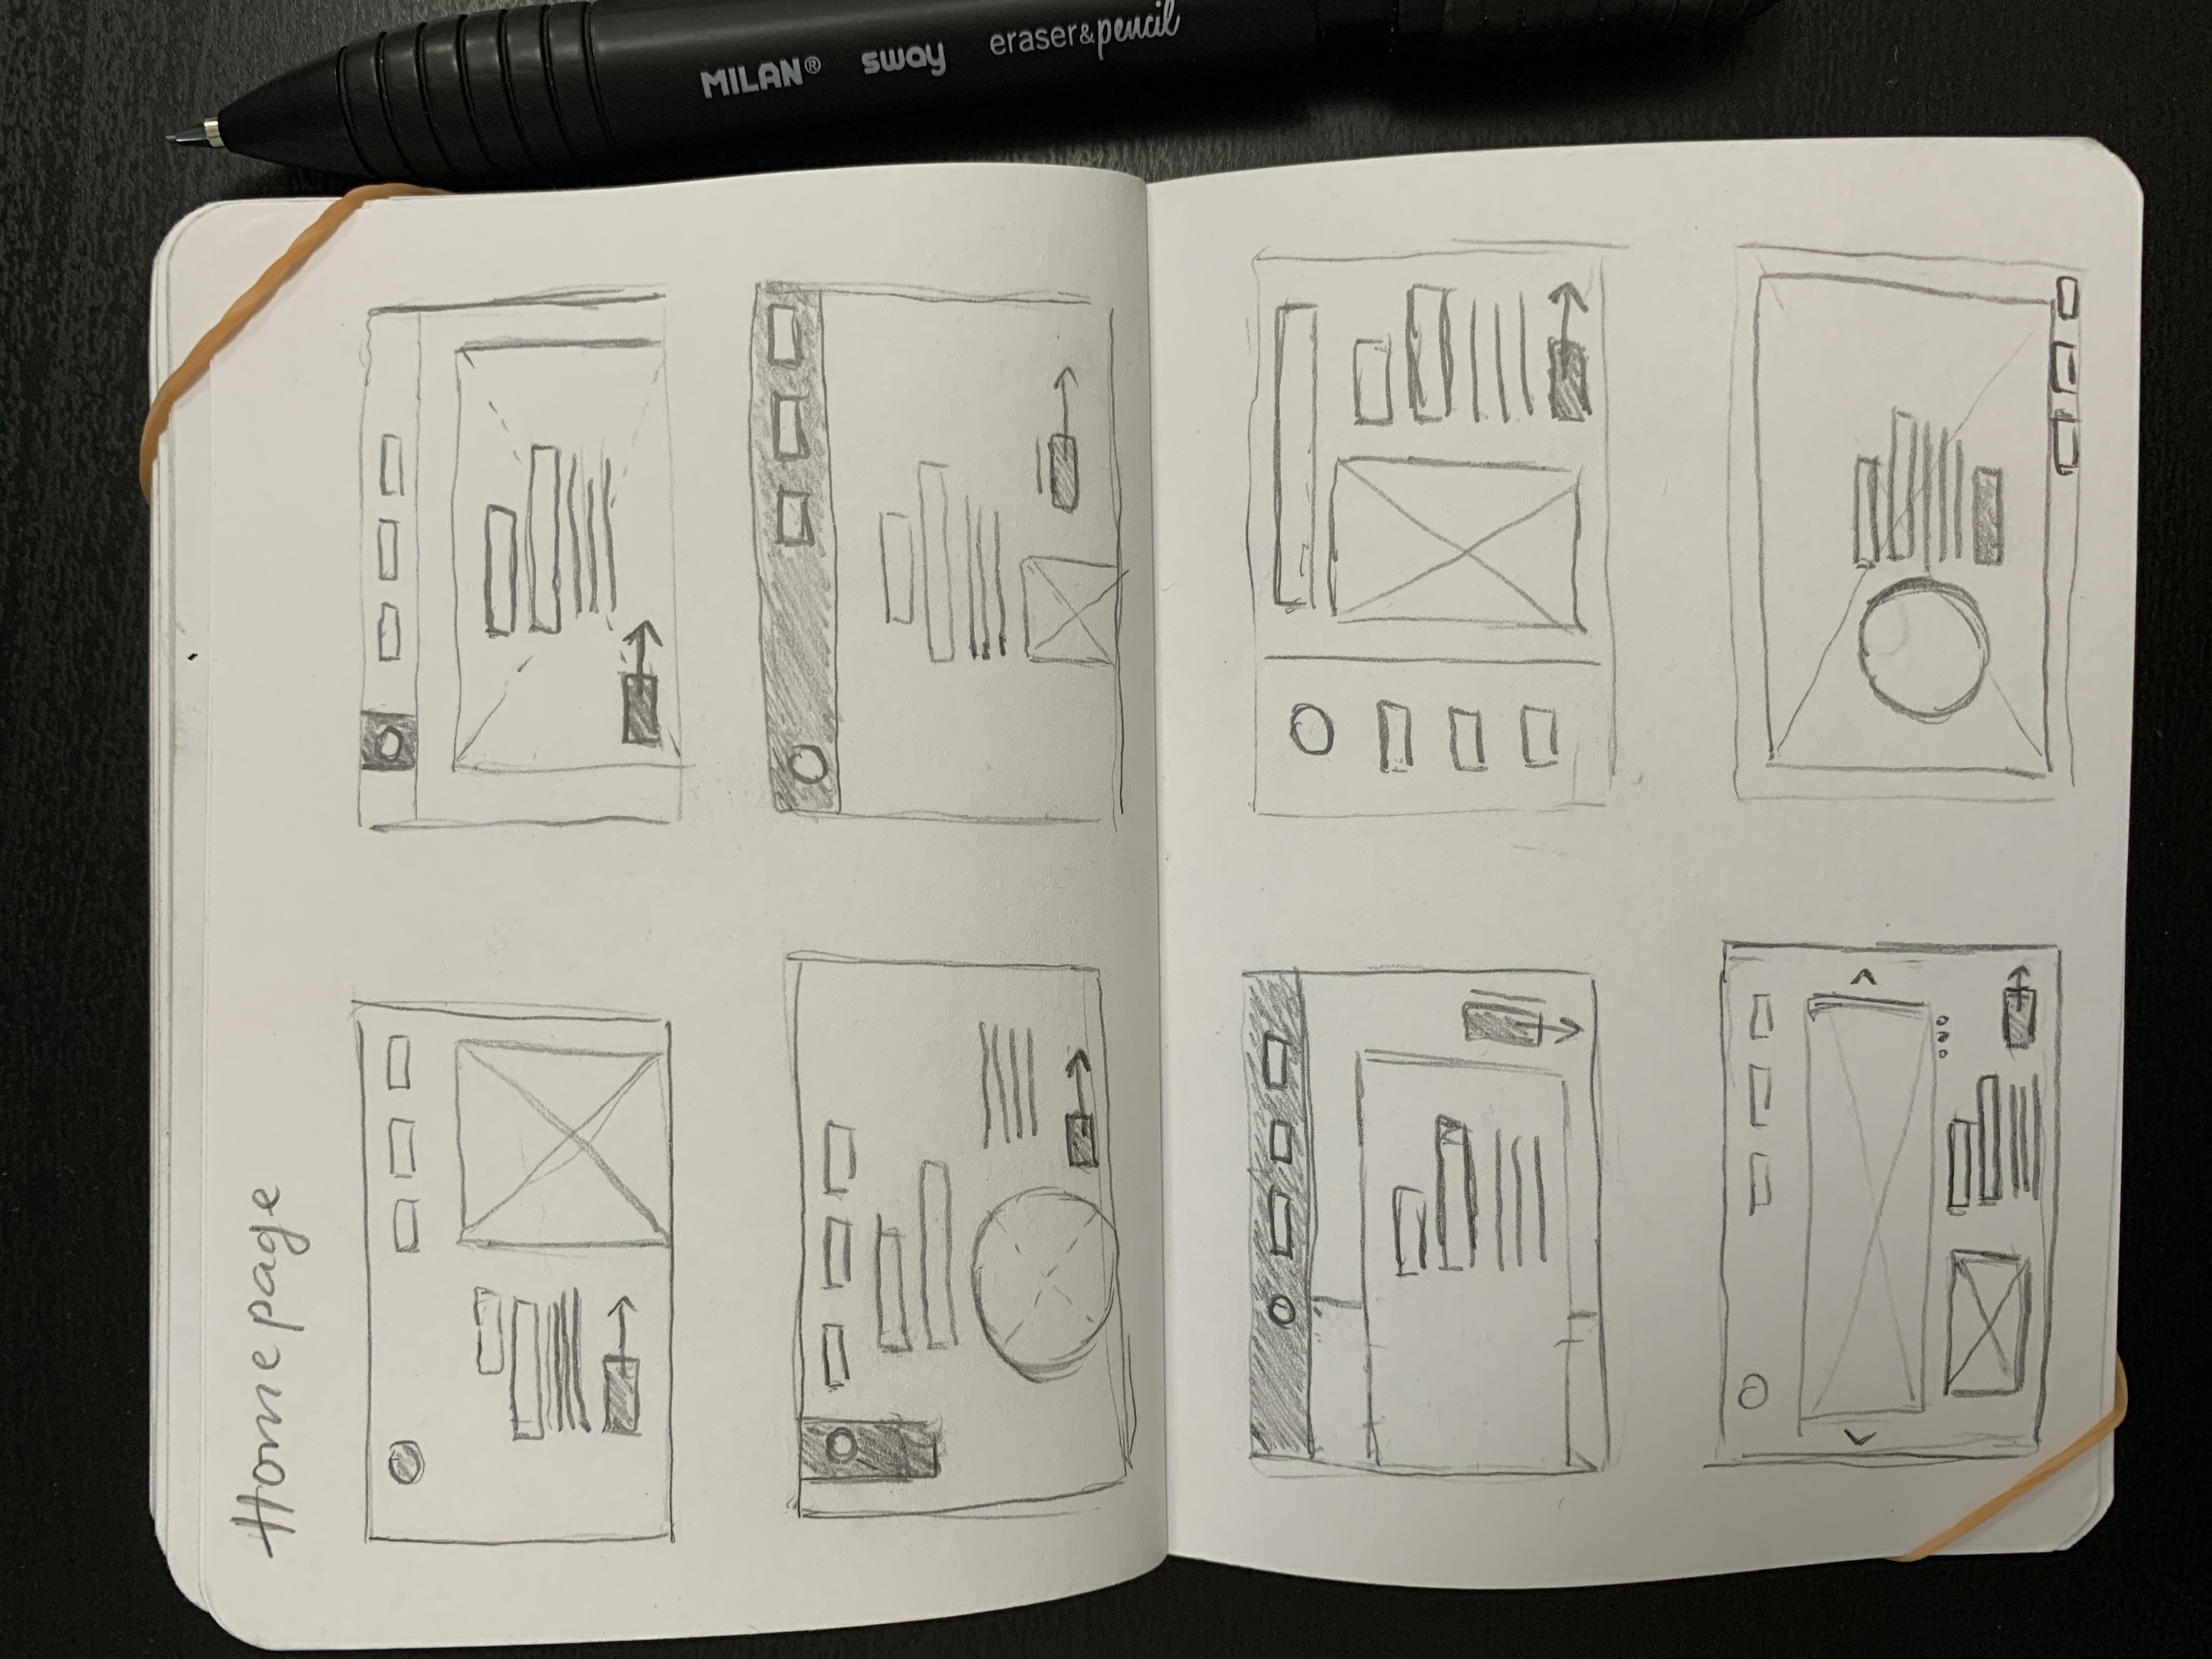 Homepage
MILAN® sway eraser&pencil